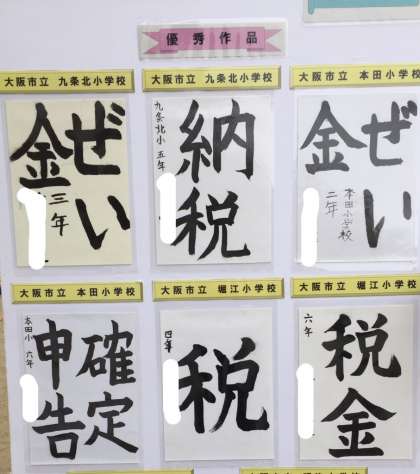 優秀作品
大阪市立 九条北小学校
大阪市立 九条北小学校
大阪市立 本田小学校
ぜい
金
三年
納税
九条北小 五年
ぜい
金
本田小学校
二年
大阪市立 本田小学校
大阪市立 堀江小学校
大阪市立 堀江小学校
確定
申告
本田小 六年
税
四年
税金
六年